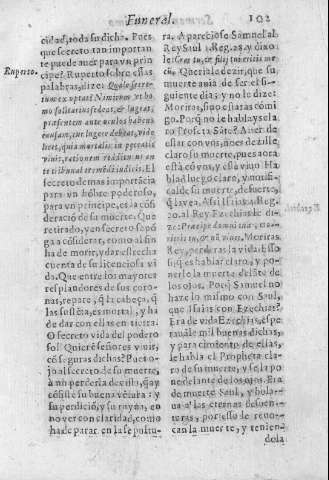 Funeral.
102
cidad, toda su dicha. Pues
que secreto tan important
te puede auer para vn prin
cipe? Ruperto sobre estas
Ruperto.
palabras, dize: Quale secre-
tum ex optat? Nimirum vt ho
mo solitarius sedeat, & lugeat,
præsentem ante oculos habens
causam, cur lugere debeat, vide
licet, quia mortalis in peccatis
viuis, rationem redditurus an
te tribunal tremẽdi iudicis. El
secreto de mas importãcia
para vn hõbre poderoso,
para vn principe, es la cõsi
deració de su muerte. Que
retirado, y en secreto se põ
ga a cõsiderar, como al fin
ha de morir, y dar estrecha
cuenta de su licenciosa vi
da. Que entre los mayores
resplandores de sus coro-
nas, repare, q̃ la cabeça, q̃
las sustẽta, es mortal, y ha
de dar con ellas en tierra.
O secreto vida del podero
so! Quiere señores viuir,
cõ seguras dichas? Pues o-
jo al secreto de su muerte,
a no perderla de vista, q̃ ay
cõsiste su buena vẽtura: y
su perdició, y su ruyna, en
no ver con claridad, como
ha de parar en la sepultu-
ra. Apareciose Samuel al
Rey Saul 1. Reg. 28. y dixo
le: Cras tu, & filij tui eritis me
cũ. Queriale dezir, que su
muerte auia de ser el si-
guiente dia; y no le dize:
Moriras, sino estaras comi
go. Porq̃ no le habla y sela-
ro Profeta Sãte? A uer de
estar con vos, no es dezille,
claro su muerte, pues aora
està cõ vos, y està viuo. Ha
bladà luego claro, y notifi-
calde su muerte, de suerte,
q̃ la vea. Assi Isaias 4. Reg.
20. al Rey Ezechias le di-
ze: Præcipe domui tuæ; mo-
rieris tu, & nõ viues. Moriras
Rey, perderas la vida. Esso
si, q̃ es hablar claro, y po-
nerle la muerte delãte de
los ojos. Pues Samuel no
haze lo mismo con Saul,
que Isaias con Ezechias?
Era de vida Ezechias, espe
rauale mil buenas dichas,
y para cimiento de ellas,
le habla el Propheta cla-
ro de su muerte, y se la po
ne delante de los ojos. Era
de muerte Saul, y bola-
ua a las eternas desuen-
turas, por esso le reuo-
can la muerte, y tenien-
dola